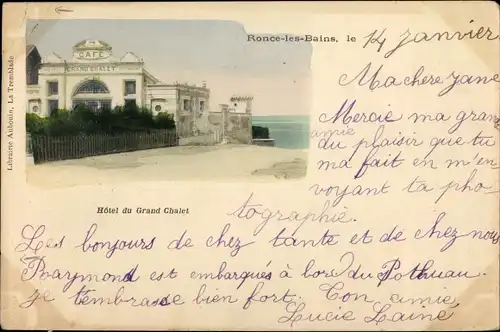 Ronce-les-Bains, le 14 janvier
CAFÉ
GRAND CHALET
Librairie Aubouin, La Tremblade
Ma chere Jane
Mercie ma gran
amie
du plaisir que tu
ma fait en m'en-
voyant ta pho-
tographie.
Hôtel du Grand Chalet
Les bonjours de chez tante et de chez nous
Raymond est embarqués à bord du Pothuau.
je t'embrasse bien fort. Ton amie
Lucie Lainé